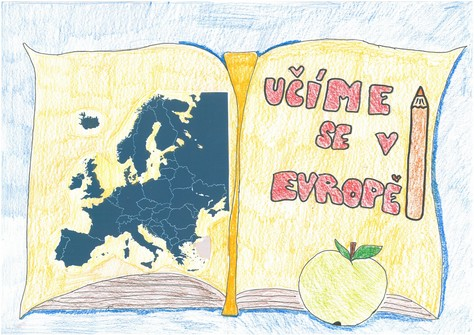 UČÍME
SE V
EVROPĚ